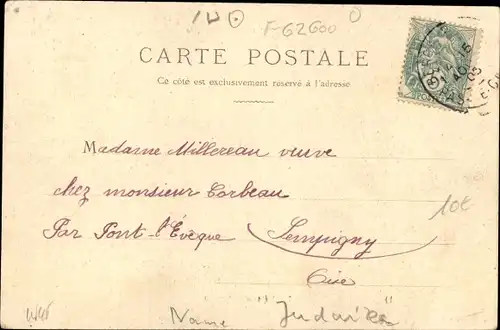 F-62600
CARTE POSTALE
Ce côté est exclusivement réservé à l'adresse
Madame Millereau veuve
chez monsieur Corbeau
Par Pont-l'Évèque Sempigny
Oise
10€
Name "Judaika"